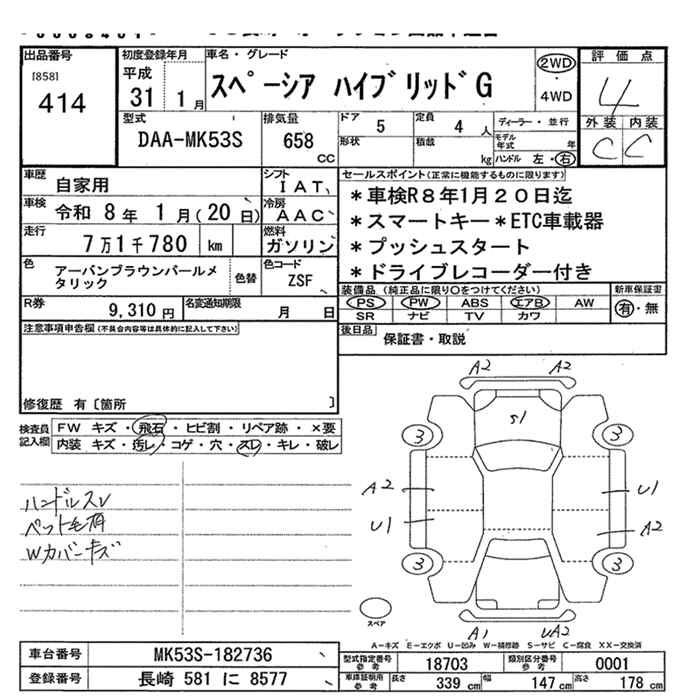 出品番号
[858]
414
初度登録年月
平成
31 1月
車名・グレード
スペーシア ハイブリッドG
2WD
4WD
評価点
4
外装 内装
C C
型式
DAA-MK53S
排気量
658
cc
ドア
5
定員
4 人
形状
積載
kg
ディーラー・並行
モデル年式 年
ハンドル 左・右
車歴
自家用
シフト
IAT
車検
令和 8年 1月(20日)
冷房
AAC
走行
7万1千780 km
燃料
ガソリン
色
アーバンブラウンパールメ
タリック
色替
色コード
ZSF
R券
9,310円
名変通知期限
月 日
セールスポイント(正常に機能するものに限ります)
*車検R8年1月20日迄
*スマートキー*ETC車載器
*プッシュスタート
*ドライブレコーダー付き
装備品(純正品に限り○をつけてください)
PS PW ABS エアB AW
SR ナビ TV カワ
新車保証書
有・無
後日品
保証書・取説
注意事項申告欄(不具合内容等は具体的に記入して下さい)
修復歴 有〔箇所 〕
検査員
記入欄
FW キズ・飛石・ヒビ割・リペア跡・×要
内装 キズ・汚レ・コゲ・穴・スレ・キレ・破レ
ハンドルスレ
ペット毛有
Wカバーキズ
A2 A2
S1
3 3
A2 U1
U1 A2
3 3
スペア
A1 UA2
A-キズ E-エクボ U-凹み W-補修跡 S-サビ C-腐食 XX-交換済
車台番号
MK53S-182736
登録番号
長崎 581 に 8577
型式指定番号
参考
18703
類別区分番号
参考
0001
車庫証明用
参考
長さ 339 cm
幅 147 cm
高さ 178 cm